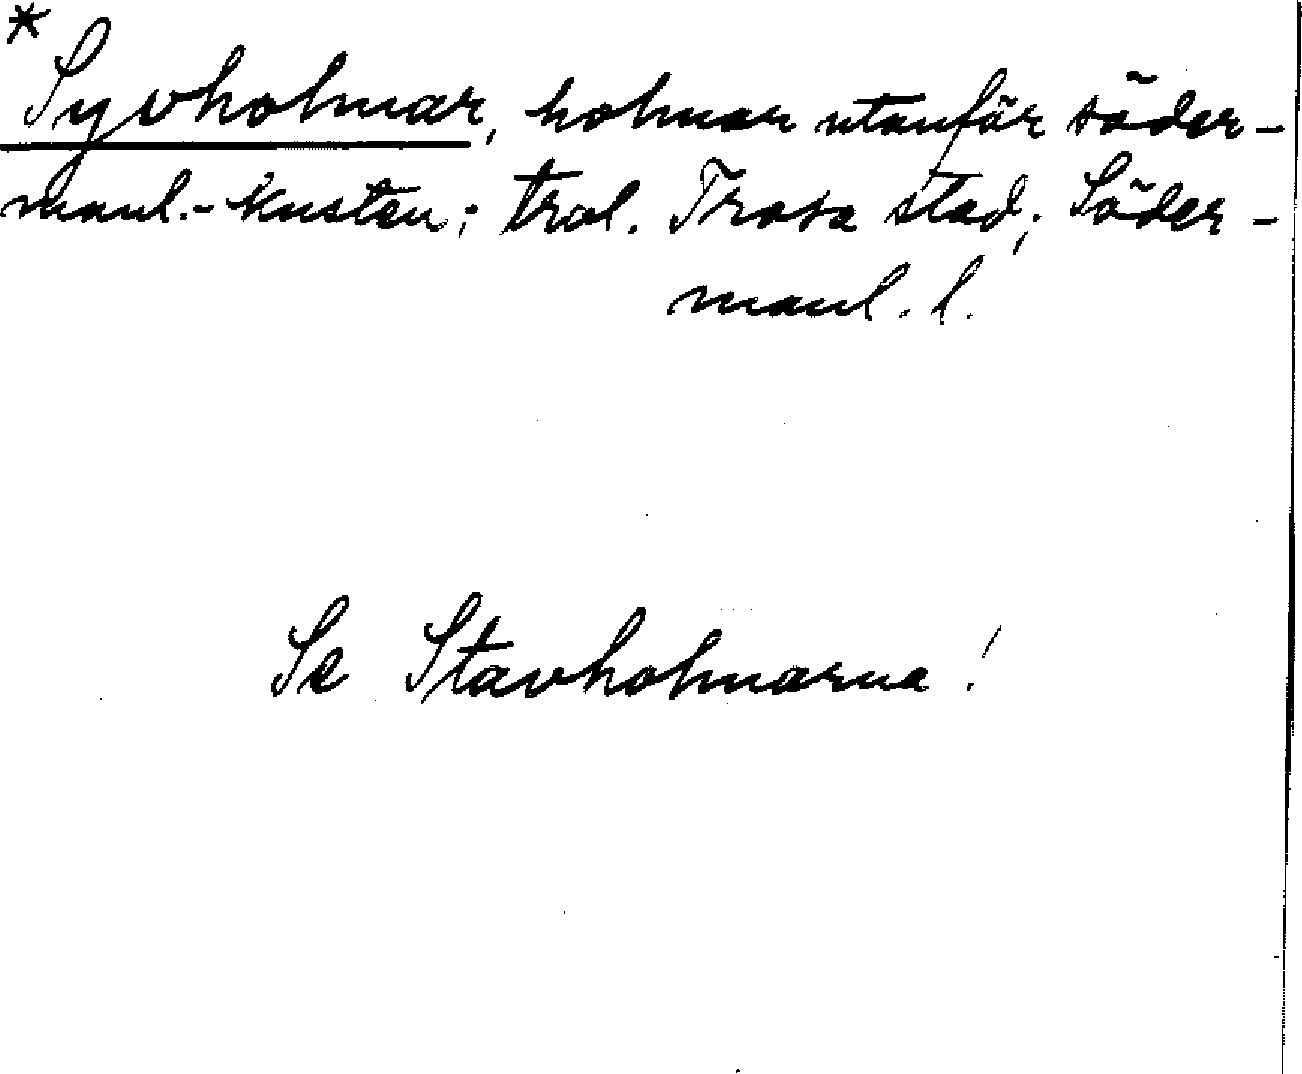 *
Syvholmar, holmar utanför söder-
manl.-kusten; trol. Trosa stad; Söder-
manl. l.
Se Stavholmarna!